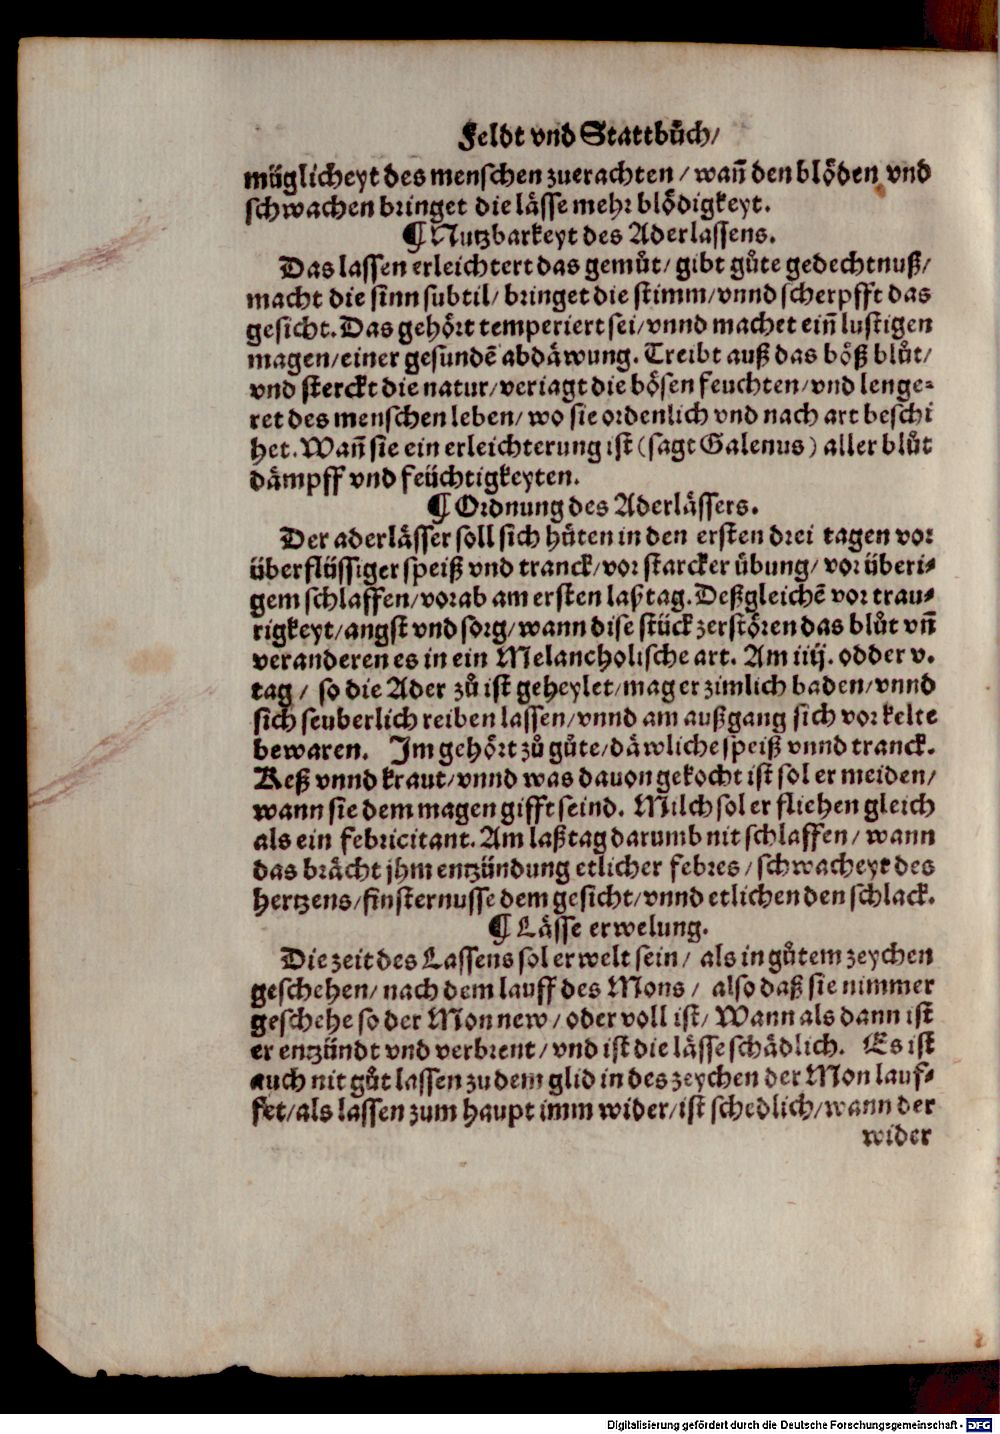 Feldt vnd Stattbůch/
müglicheyt des menschen zuerachten/ wañ den blöden vnd
schwachen bringet die lässe mehr blödigkeyt.
¶ Nutzbarkeyt des Aderlassens.
Das lassen erleichtert das gemůt/ gibt gůte gedechtnuß/
macht die sinn subtil/ bringet die stimm/ vnnd scherpfft das
gesicht. Das gehört temperiert sei/ vnnd machet eiñ lustigen
magen/ einer gesundē abdäwung. Treibt auß das böß blůt/
vnd sterckt die natur/ veriagt die bösen feuchten/ vnd lenge-
ret des menschen leben/ wo sie ordenlich vnd nach art beschi
het. Wañ sie ein erleichterung ist (sagt Galenus) aller blůt
dämpff vnd feüchtigkeyten.
¶ Ordnung des Aderlässers.
Der aderlässer soll sich hüten in den ersten drei tagen vor
überflüssiger speiß vnd tranck/ vor starcker übung/ vor überi-
gem schlaffen/ vorab am ersten laßtag. Deßgleichē vor trau-
rigkeyt/ angst vnd sorg/ wann dise stück zerstören das blůt vñ
veranderen es in ein Melancholische art. Am iiij. odder v.
tag/ so die Ader zů ist geheylet/ mag er zimlich baden/ vnnd
sich seuberlich reiben lassen/ vnnd am außgang sich vor kelte
bewaren. Im gehört zů gůte/ däwliche speiß vnnd tranck.
Keß vnnd kraut/ vnnd was dauon gekocht ist sol er meiden/
wann sie dem magen gifft seind. Milch sol er fliehen gleich
als ein febricitant. Am laßtag darumb nit schlaffen/ wann
das brächt jhm entzündung etlicher febres/ schwacheyt des
hertzens/ finsternusse dem gesicht/ vnnd etlichen den schlack.
¶ Lässe erwelung.
Die zeit des Lassens sol erwelt sein/ als in gůtem zeychen
geschehen/ nach dem lauff des Mons/ also daß sie nimmer
geschehe so der Mon new/ oder voll ist/ Wann als dann ist
er entzündt vnd verbrent/ vnd ist die lässe schädlich. Es ist
auch nit gůt lassen zu dem glid in des zeychen der Mon lauf-
fet/ als lassen zum haupt imm wider/ ist schedlich/ wann der
wider
Digitalisierung gefördert durch die Deutsche Forschungsgemeinschaft - DFG